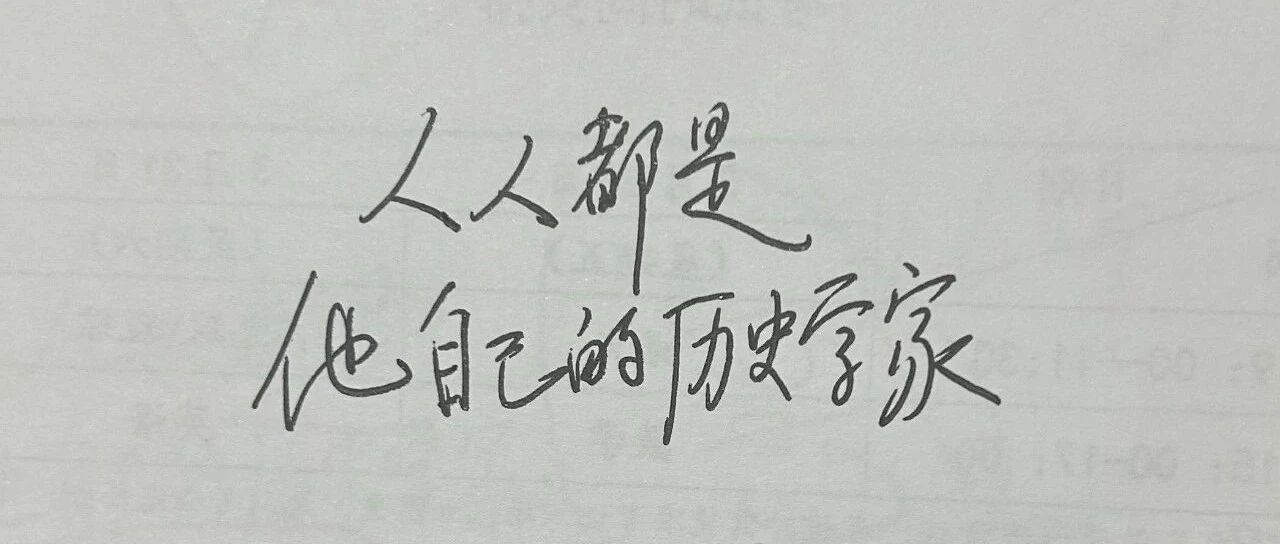 人人都是
他自己的历史学家